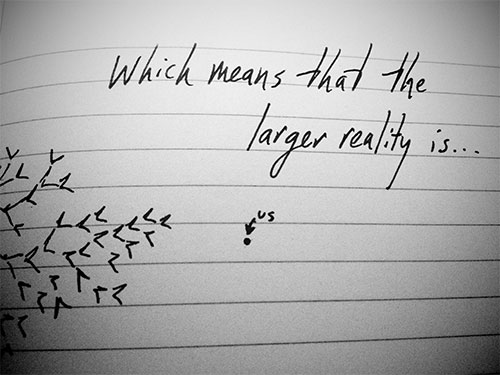 Which means that the
larger reality is...
us